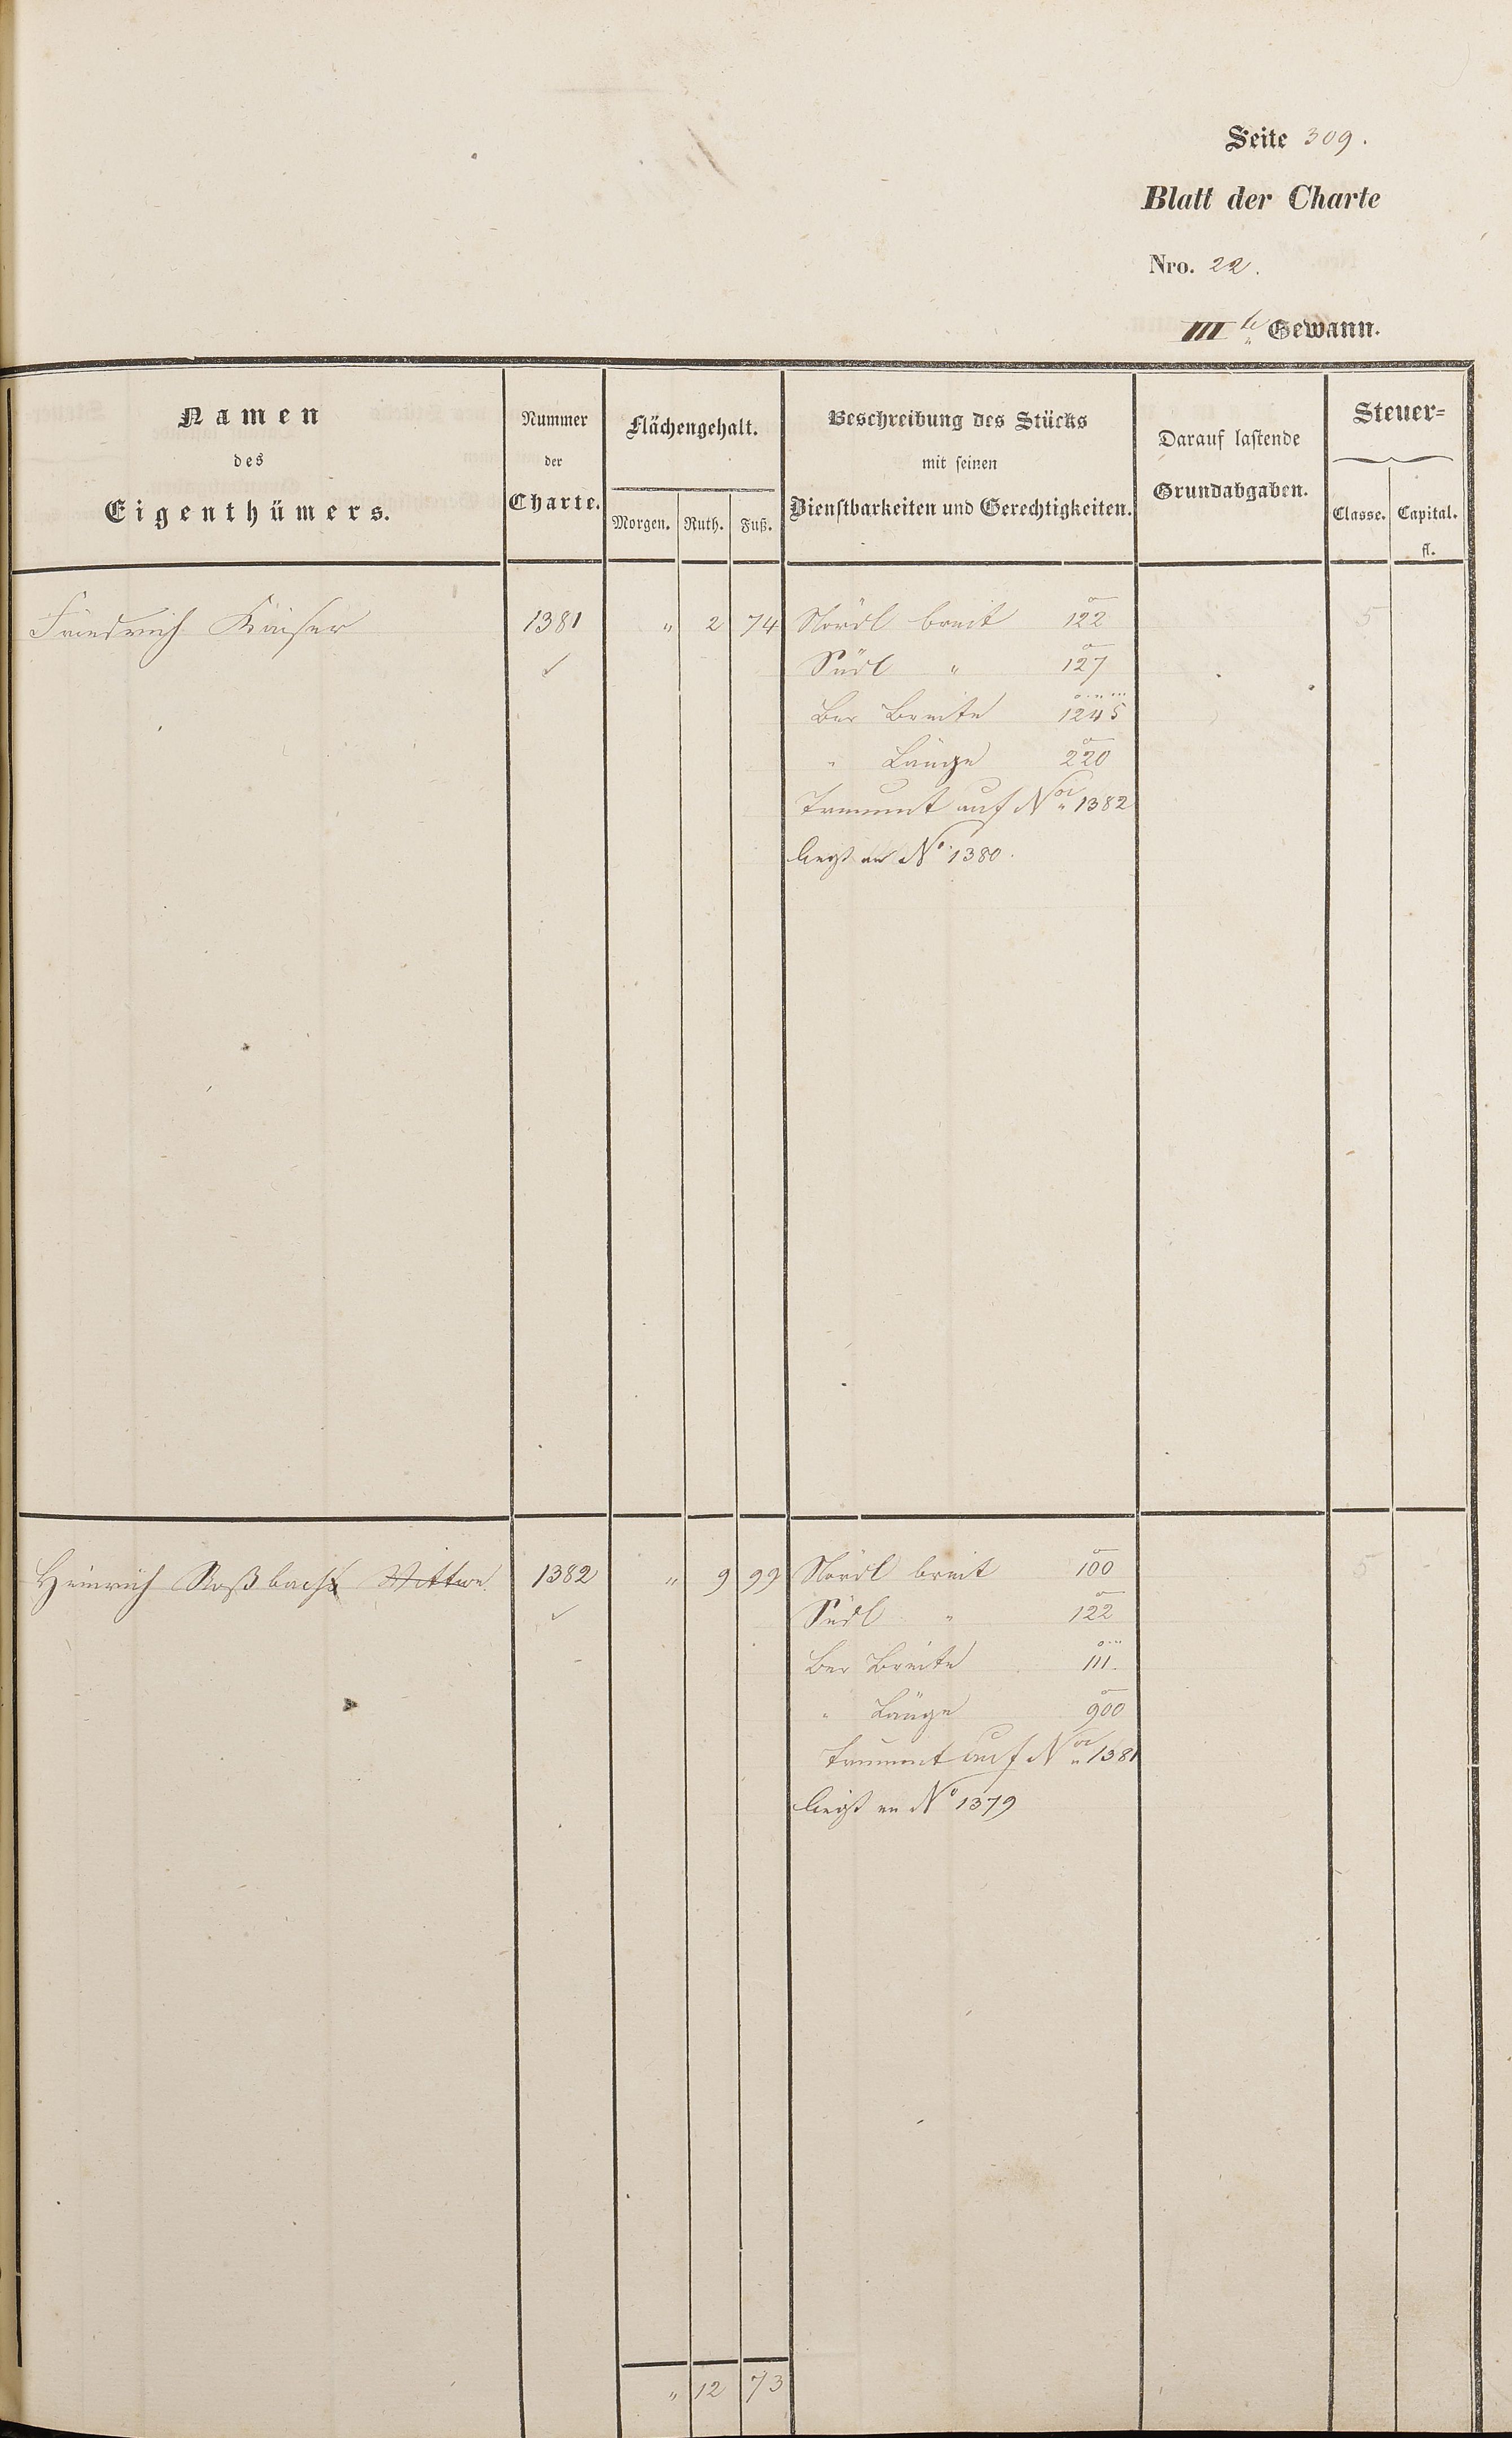 Seite 309.
Blatt der Charte
Nro. 22.
III te Gewann.
Namen des Eigenthümers.
Nummer der Charte.
Flächengehalt.
Morgen. Ruth. Fuß.
Beschreibung des Stücks mit seinen Dienstbarkeiten und Gerechtigkeiten.
Darauf lastende Grundabgaben.
Steuer=
Classe. Capital. fl.
Friedrich Kaiser 1381 " 2 74 Nördl breit 122 5
Südl " 127
Ber Breite 1245
" Länge 220
auf No 1382
liegt an No 1380.
Heinrich Roßbach Wittwe 1382 " 9 99 Nördl breit 100 5
Südl " 122
Ber Breite 111.
" Länge 900
auf No 1381
liegt an No 1379
" 12 73